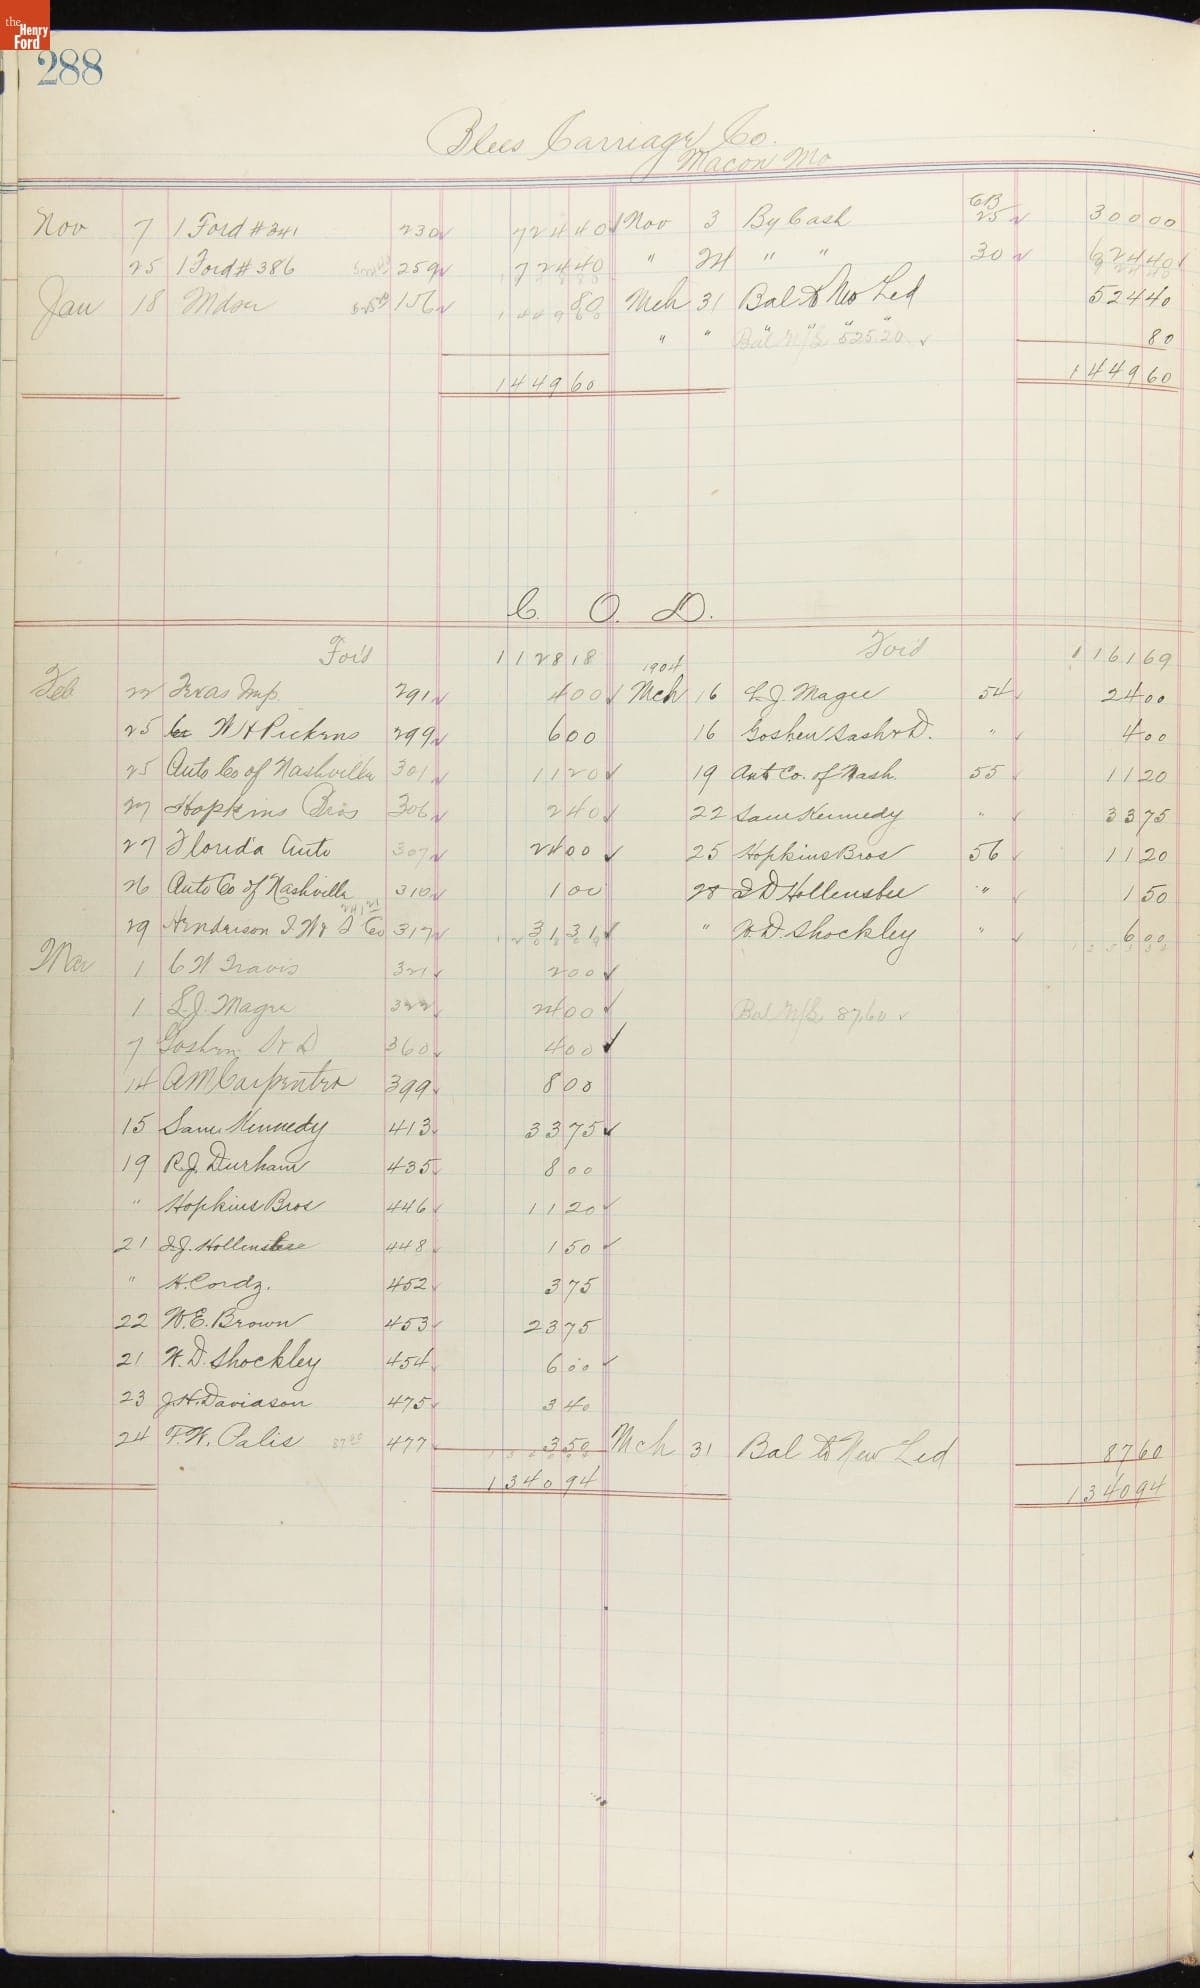 the Henry Ford
288
Blees Carriage Co.
Macon Mo
Nov 7 1 Ford #341 230 724 40 Nov 3 By Cash CB 25 300 00
25 1 Ford #386 259 724 40 " 24 " " 30 624 40
Jan 18 Mdse 156 80 Mch 31 Bal to New Led 524 40
" " " " " " 80
Bal N/L 525.20
1449 60 1449 60
C. O. D.
For'd 1128 18 For'd 1161 69
Feb 22 Texas Imp. 291 4 00 1904 Mch 16 L.J. Magee 54 24 00
25 W H Pickens 299 6 00 16 Goshen Sash & D. " 4 00
25 Auto Co of Nashville 301 11 20 19 Aut Co. of Nash. 55 11 20
27 Hopkins Bros 306 2 40 22 Sam Kennedy " 33 75
27 Florida Auto 307 24 00 25 Hopkins Bros 56 11 20
26 Auto Co of Nashville 310 1 00 28 I D Hollensbee " 1 50
29 Hendrison I W & S Co 317 31 31 " W.D. Shockley " 6 00
Mar 1 C W Travis 321 2 00
1 L.J. Magee 322 24 00 Bal N/L 87.60
7 Goshen S & D 360 4 00
14 A M Carpenter 399 8 00
15 Sam Kennedy 413 33 75
19 R.J. Durham 435 8 00
" Hopkins Bros 446 11 20
21 I.J. Hollensbee 448 1 50
" H. Cordz. 452 3 75
22 W.E. Brown 453 23 75
21 W.D. Shockley 454 6 00
23 J.H. Davidson 475 3 40
24 F.W. Palis 477 3 50 Mch 31 Bal to New Led 87 60
1340 94 1340 94